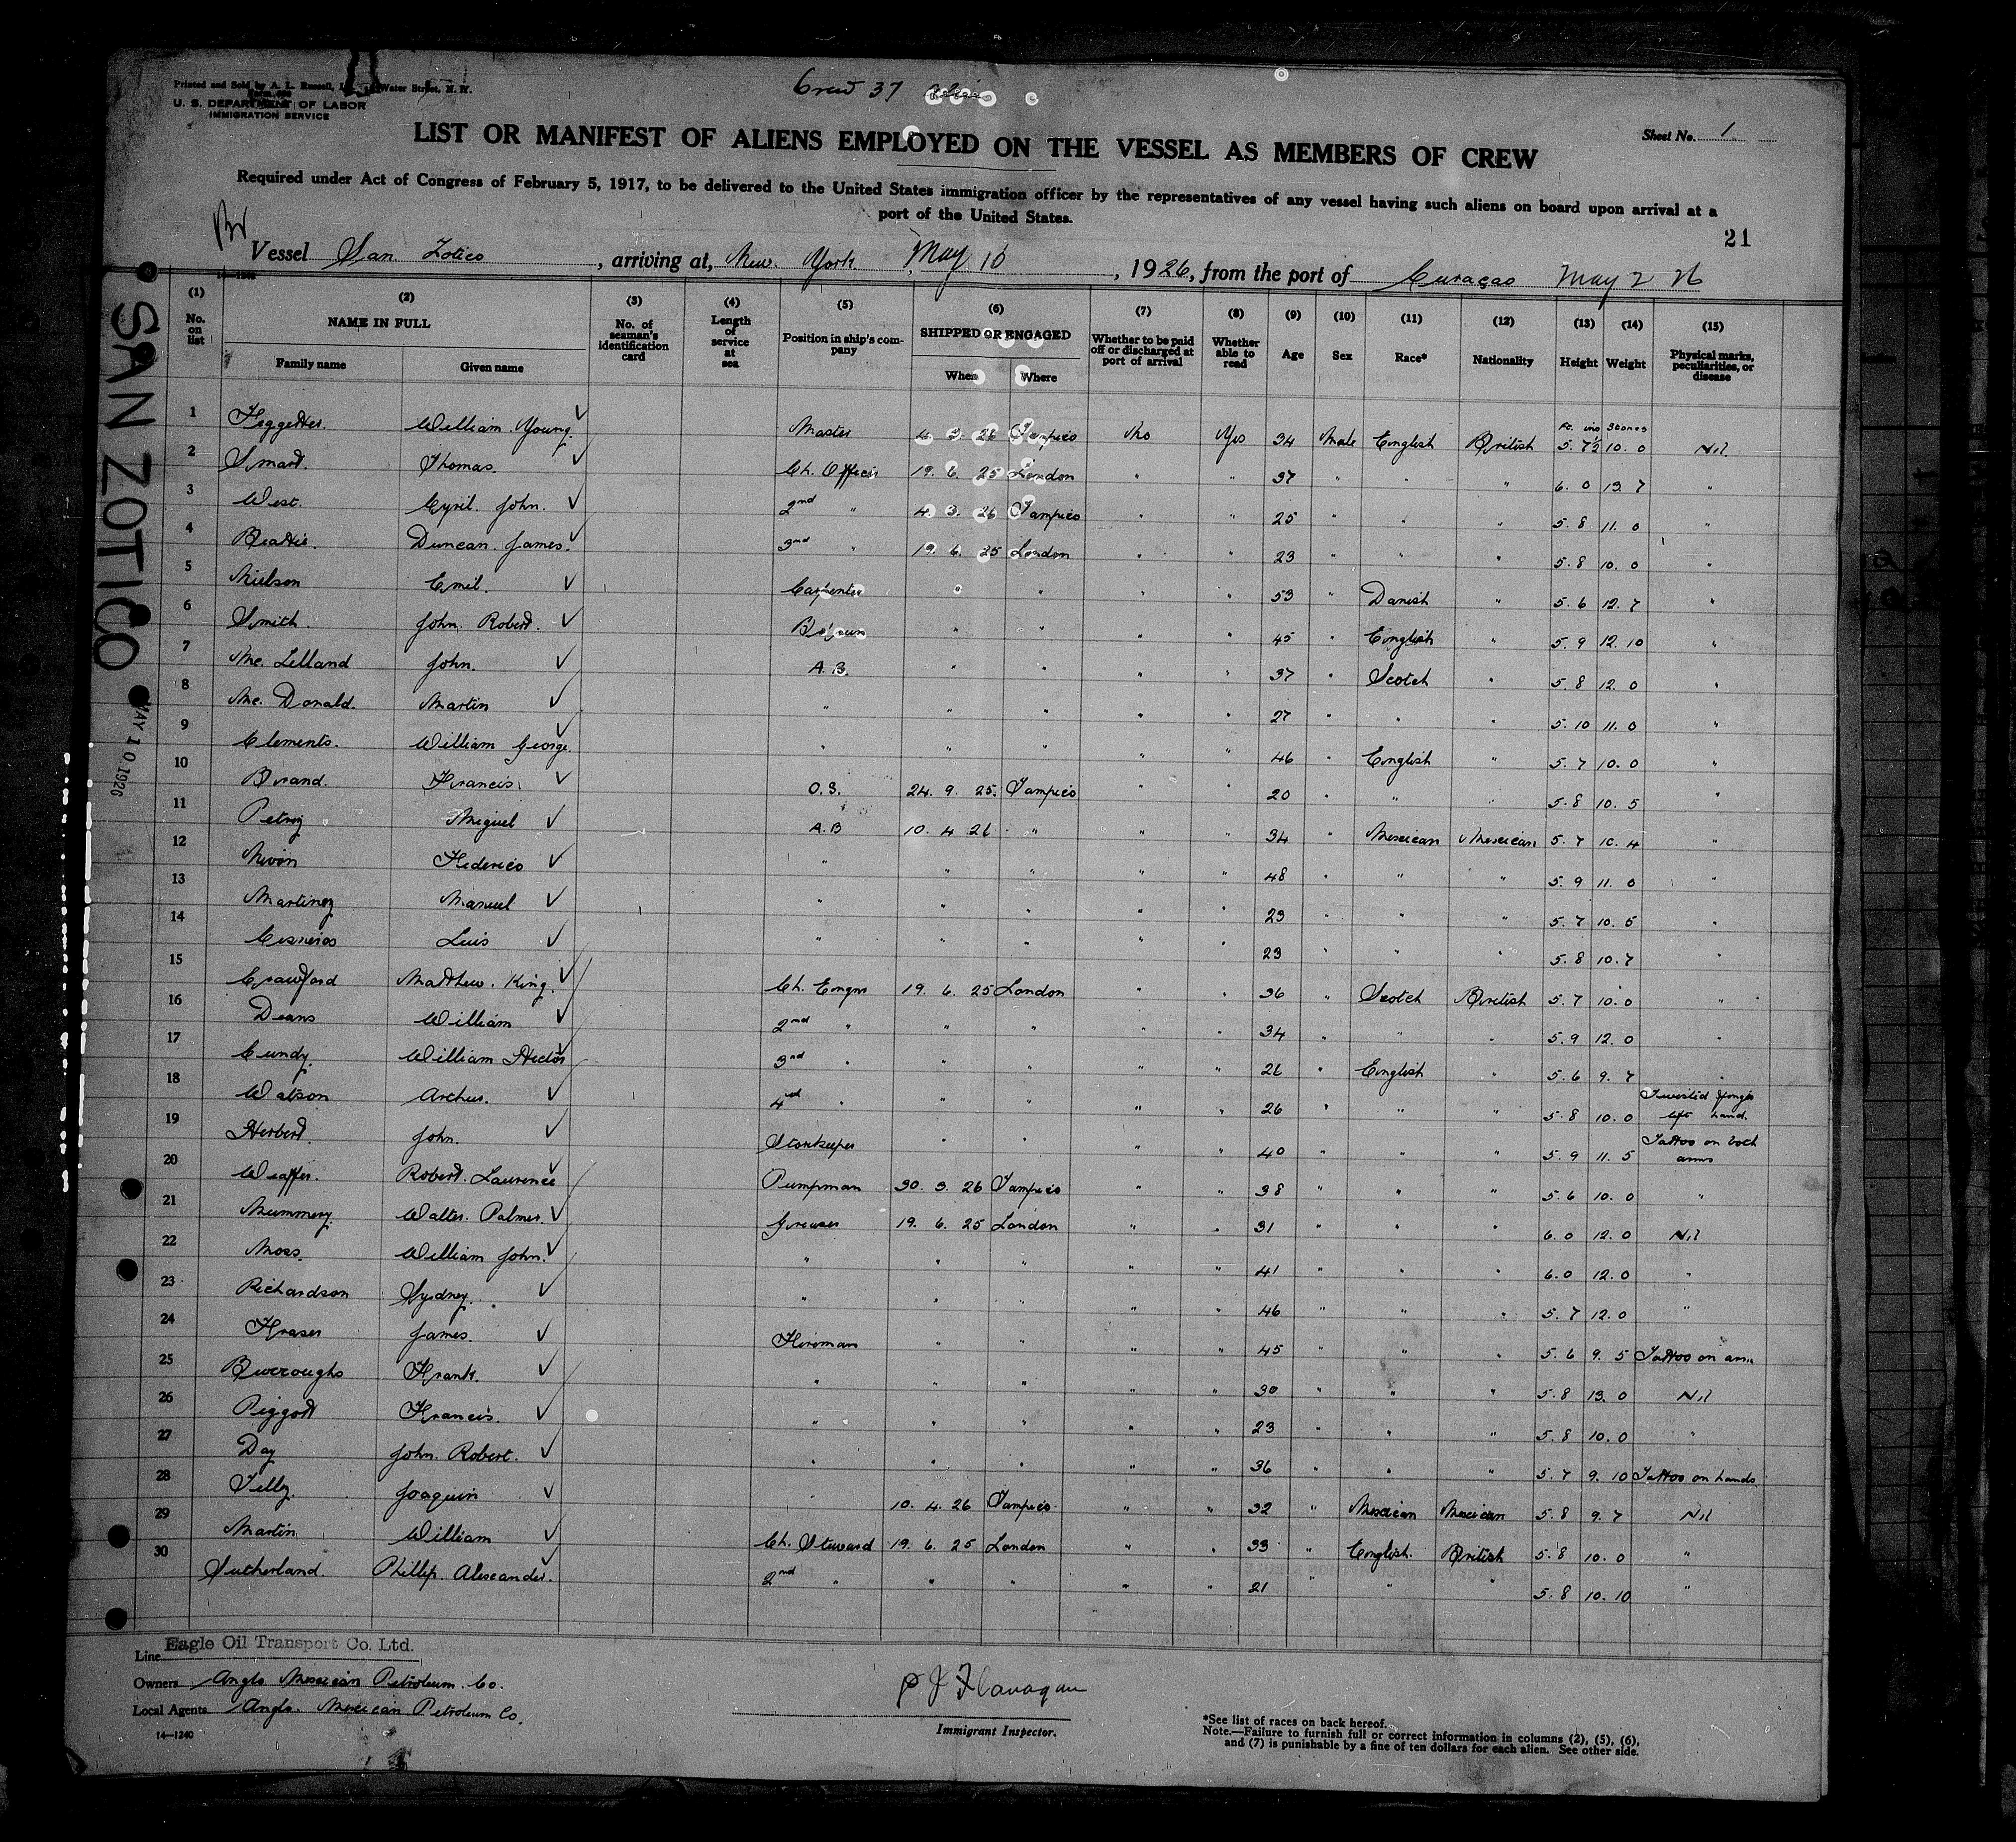 Printed and Sold by A. L. Russell, Water Street, N. Y.
U. S. DEPARTMENT OF LABOR
IMMIGRATION SERVICE
Crew 37
Sheet No. 1
LIST OR MANIFEST OF ALIENS EMPLOYED ON THE VESSEL AS MEMBERS OF CREW
Required under Act of Congress of February 5, 1917, to be delivered to the United States immigration officer by the representatives of any vessel having such aliens on board upon arrival at a
port of the United States.
Br
21
Vessel San Zotico, arriving at, New York May 10, 1926, from the port of Curaçao May 2 26
14—1240
SAN ZOTICO
MAY 10 1926
(1) (2) (3) (4) (5) (6) (7) (8) (9) (10) (11) (12) (13) (14) (15)
No. on list NAME IN FULL Family name Given name No. of seaman's identification card Length of service at sea Position in ship's company SHIPPED OR ENGAGED When Where Whether to be paid off or discharged at port of arrival Whether able to read Age Sex Race* Nationality Height Weight Physical marks, peculiarities, or disease
Ft. ins Stones
1 Feggetter. William Young. ✓ Master 4. 3. 26 Tampico No Yes 34 Male English British 5. 7½ 10. 0 Nil
2 Smart. Thomas. ✓ Ch. Officer 19. 6. 25 London " " 37 " " " 6. 0 13. 7 "
3 West. Cyril. John. ✓ 2nd " 4. 3. 26 Tampico " " 25 " " " 5. 8 11. 0 "
4 Beattie. Duncan. James. ✓ 3rd " 19. 6. 25 London " " 23 " " " 5. 8 10. 0 "
5 Nielson Emil. ✓ Carpenter " " " " 53 " Danish " 5. 6 12. 7 "
6 Smith. John. Robert. ✓ Bosun " " " " 45 " English " 5. 9 12. 10 "
7 Mc. Lelland John. ✓ A. B. " " " " 37 " Scotch " 5. 8 12. 0 "
8 Mc. Donald. Martin ✓ " " " " " 27 " " " 5. 10 11. 0 "
9 Clements. William George. ✓ " " " " " 46 " English " 5. 7 10. 0 "
10 Brand. Francis. ✓ O. S. 24. 9. 25. Tampico " " 20 " " " 5. 8 10. 5 "
11 Miguel ✓ A. B 10. 4. 26 " " " 34 " Mexican Mexican 5. 7 10. 4 "
12 Federico ✓ " " " " " 48 " " " 5. 9 11. 0 "
13 Martinez Manuel ✓ " " " " " 23 " " " 5. 7 10. 5 "
14 Cisneros Luis ✓ " " " " " 23 " " " 5. 8 10. 7 "
15 Crawford Matthew. King. ✓ Ch. Engnr 19. 6. 25 London " " 36 " Scotch British 5. 7 10. 0 "
16 Deans William ✓ 2nd " " " " " 34 " " " 5. 9 12. 0 "
17 Cundy. William Hector ✓ 3rd " " " " " 26 " English " 5. 6 9. 7 "
18 Watson Arthur. ✓ 4th " " " " " 26 " " " 5. 8 10. 0 Twisted finger left hand.
19 Herbert. John. ✓ Storekeeper " " " " 40 " " " 5. 9 11. 5 Tattoo on both arms
20 Robert. Laurence ✓ Pumpman 30. 3. 26 Tampico " " 38 " " " 5. 6 10. 0 "
21 Mummery. Walter. Palmer. ✓ Greaser 19. 6. 25 London " " 31 " " " 6. 0 12. 0 Nil
22 Moss. William John. ✓ " " " " " 41 " " " 6. 0 12. 0 "
23 Richardson Sydney. ✓ " " " " " 46 " " " 5. 7 12. 0 "
24 Fraser James. ✓ Fireman " " " " 45 " " " 5. 6 9. 5 Tattoo on arm
25 Burroughs Frank. ✓ " " " " " 30 " " " 5. 8 13. 0 Nil
26 Piggott Francis. ✓ " " " " " 23 " " " 5. 8 10. 0 "
27 Day John. Robert. ✓ " " " " " 36 " " " 5. 7 9. 10 Tattoo on hands
28 Joaquin ✓ " 10. 4. 26 Tampico " " 32 " Mexican Mexican 5. 8 9. 7 Nil
29 Martin William ✓ Ch. Steward 19. 6. 25 London " " 33 " English. British 5. 8 10. 0 "
30 Sutherland. Phillip. Alexander. ✓ 2nd " " " " " 21 " " " 5. 8 10. 10 "
Line Eagle Oil Transport Co. Ltd.
Owners Anglo Mexican Petroleum. Co.
Local Agents Anglo. Mexican Petroleum Co.
14—1240
P J Flanagan
Immigrant Inspector.
*See list of races on back hereof.
Note.—Failure to furnish full or correct information in columns (2), (5), (6),
and (7) is punishable by a fine of ten dollars for each alien. See other side.